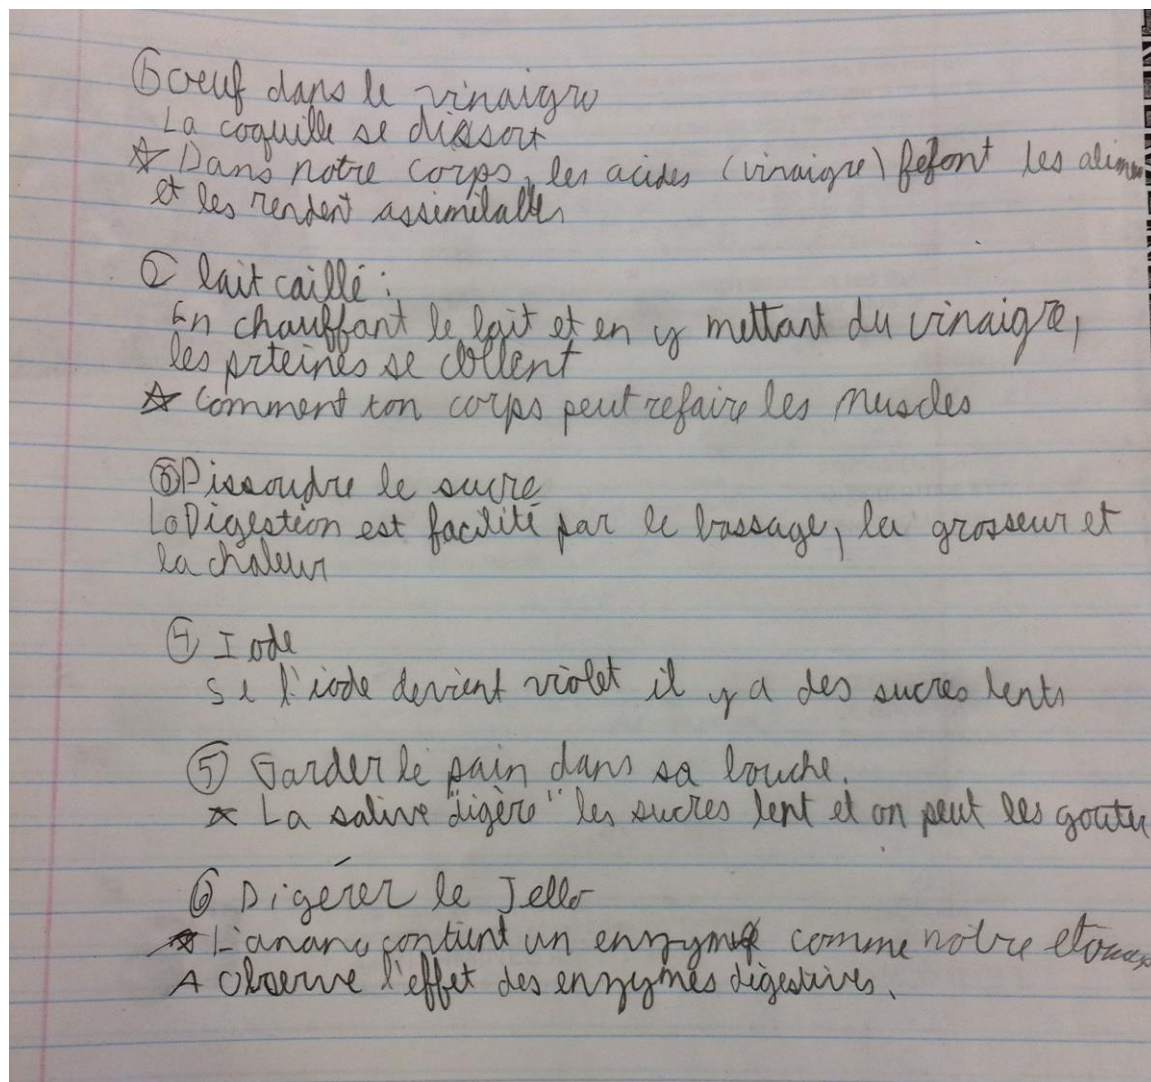 ① oeuf dans le vinaigre
La coquille se dissout
☆ Dans notre corps, les acides (vinaigre) font les alimen
et les rendent assimilables
② lait caillé :
En chauffant le lait et en y mettant du vinaigre,
les prteines se collent
☆ Comment ton corps peut refaire les muscles
③ Dissoudre le sucre
La Digestion est facilité par le brassage, la grosseur et
la chaleur
④ Iode
Si l'iode devient violet il y a des sucres lents
⑤ Garder le pain dans sa bouche.
☆ La salive "digère" les sucres lent et on peut les gouter
⑥ Digérer le Jello
☆ L'anana contient un enzyme comme notre
A Observe l'effet des enzymes digestives.